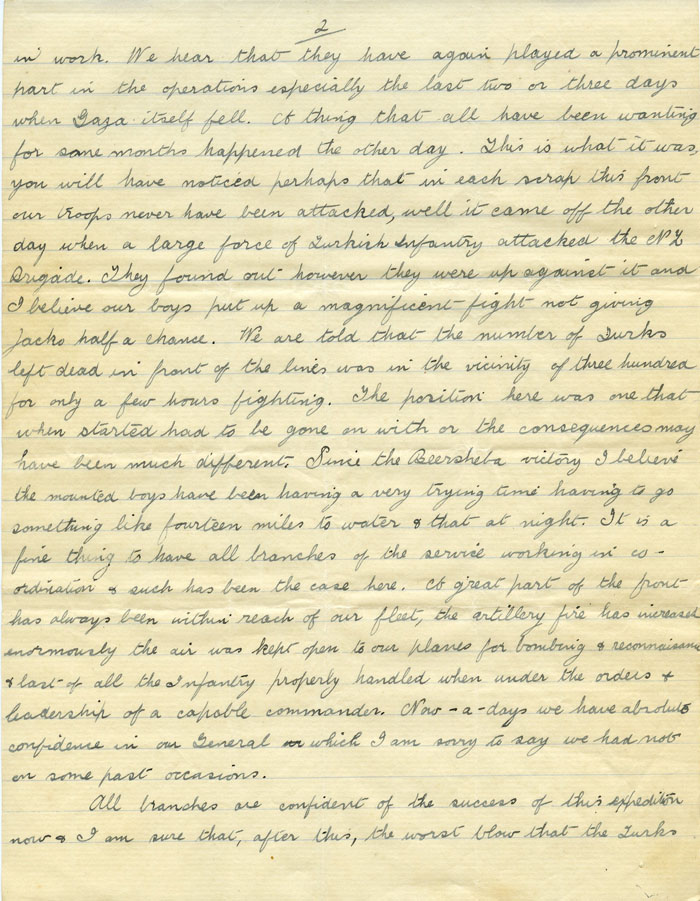 2
in work. We hear that they have again played a prominent
part in the operations especially the last two or three days
when Gaza itself fell. A thing that all have been wanting
for some months happened the other day. This is what it was,
you will have noticed perhaps that in each scrap this front
our troops never have been attacked, well it came off the other
day when a large force of Turkish Infantry attacked the NZ
Brigade. They found out however they were up against it and
I believe our boys put up a magnificent fight not giving
Jacko half a chance. We are told that the number of Turks
left dead in front of the lines was in the vicinity of three hundred
for only a few hours fighting. The position here was one that
when started had to be gone on with or the consequences may
have been much different. Since the Beersheba victory I believe
the mounted boys have been having a very trying time having to go
something like fourteen miles to water & that at night. It is a
fine thing to have all branches of the service working in co-
ordination & such has been the case here. A great part of the front
has always been within reach of our fleet, the artillery fire has increased
enormously the air was kept open to our planes for bombing & reconnaisance
& last of all the Infantry properly handled when under the orders &
leadership of a capable commander. Now-a-days we have absolute
confidence in our General which I am sorry to say we had not
on some past occasions.
All branches are confident of the success of this expedition
now & I am sure that, after this, the worst blow that the Turks